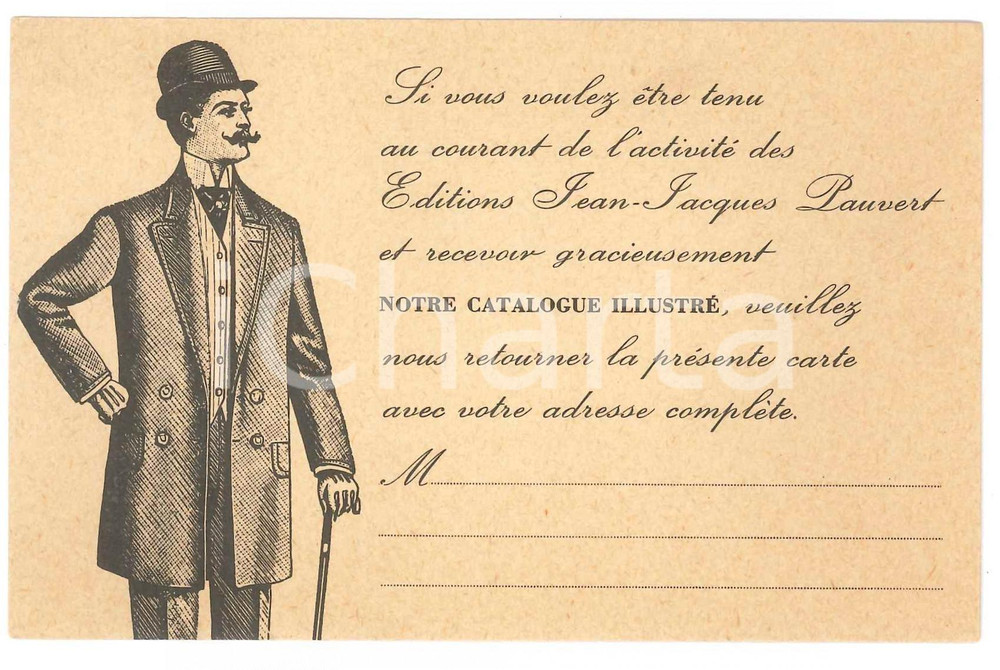 Si vous voulez être tenu
au courant de l'activité des
Editions Jean-Jacques Pauvert
et recevoir gracieusement
NOTRE CATALOGUE ILLUSTRÉ, veuillez
nous retourner la présente carte
avec votre adresse complète.
M
Charta